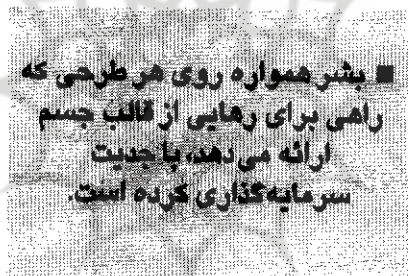 ■ بشر همواره روی هر طرحی که
راهی برای رهایی از قالب جسم
ارائه می‌دهد، با جدیت
سرمایه‌گذاری کرده است.